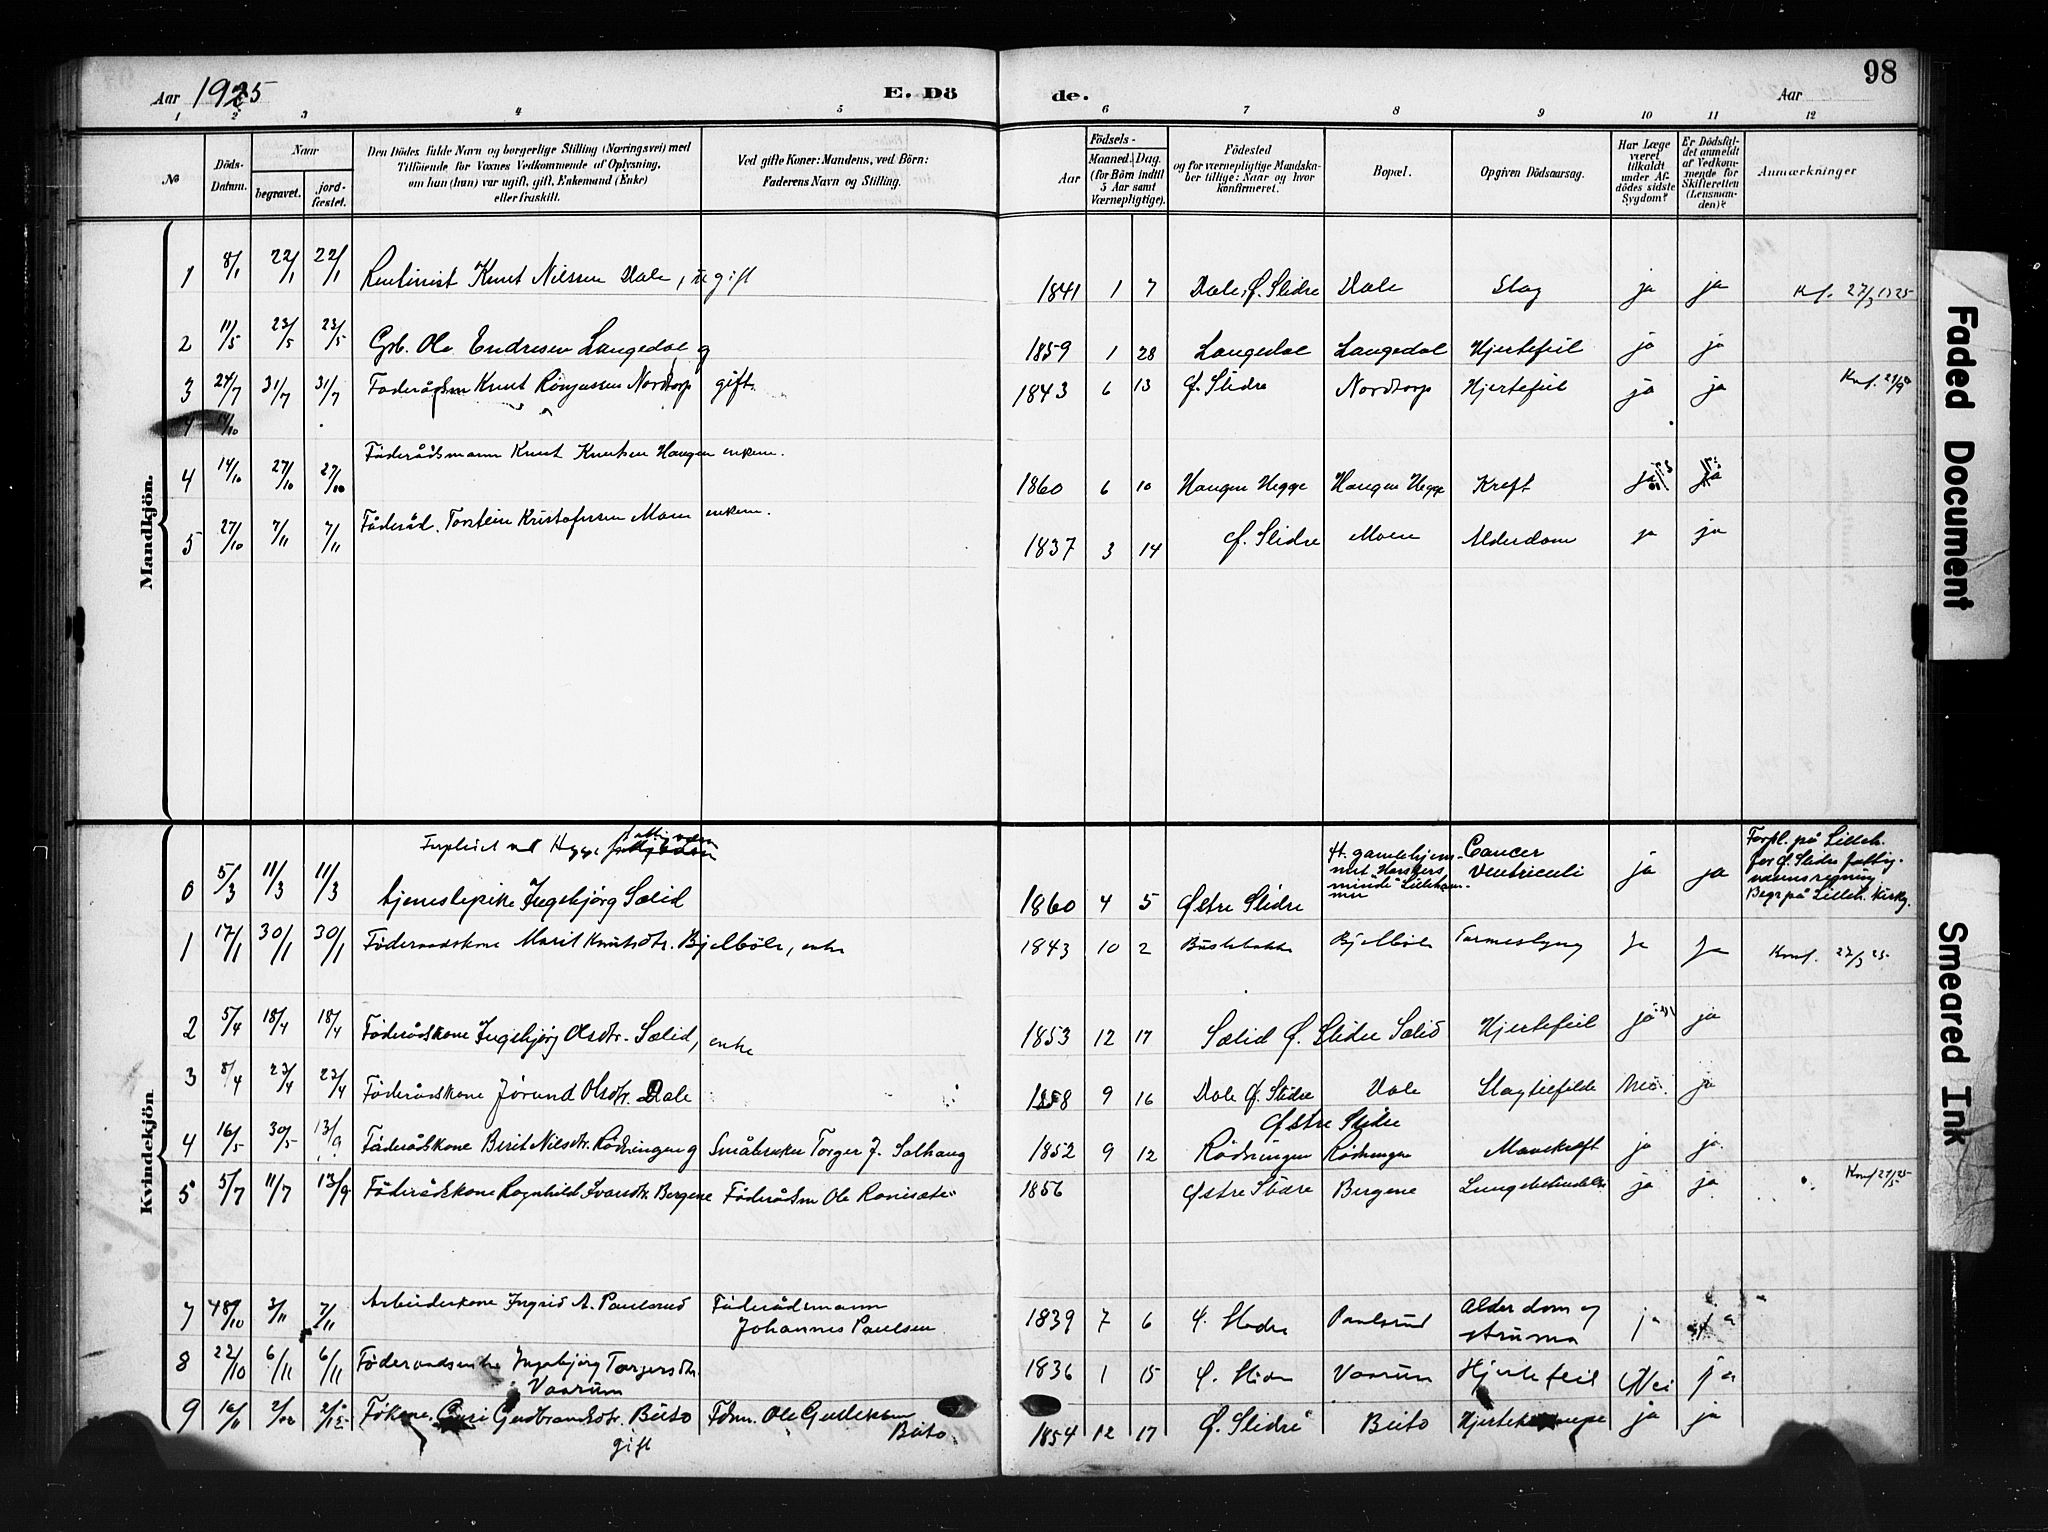 Aar 1925
E. Dö
de.
Aar
98
1 2 3 4 5 6 7 8 9 10 11 12
№
Döds-
Datum.
Naar
begravet.
jord-
fæstet.
Den Dödes fulde Navn og borgerlige Stilling (Næringsvei) med
Tilföiende for Voxnes Vedkommende af Oplysning,
om han (hun) var ugift, gift, Enkemand (Enke)
eller fraskilt.
Ved gifte Koner: Mandens, ved Börn:
Faderens Navn og Stilling.
Födsels-
Aar
Maaned. Dag.
(for Börn indtil
5 Aar samt
Værnepligtige).
Födested
og for værnepligtige Mandska-
ber tillige: Naar og hvor
konfirmeret.
Bopæl.
Opgiven Dödsaarsag.
Har Læge
været
tilkaldt
under Af-
dödes sidste
Sygdom?
Er Dödsfal-
det anmeldt
af Vedkom-
mende for
Skifteretten
(Lensman-
den)?
Anmærkninger
Mandkjön.
1 8/1 22/1 22/1 Rentenist Knut Nilssen Dale, ugift 1841 1 7 Dale, Ø. Slidre Dale Slag ja ja
2 11/5 23/5 23/5 Grb. Ole Endresen Langedal g 1859 1 28 Langedal Langedal Hjertefeil ja ja
3 24/7 31/7 31/7 Føderådsm Knut Nordtorp gift. 1843 6 13 Ø. Slidre Nordtorp Hjertefeil ja ja
4 14/10 27/10 27/10 Føderådsmann Knut Knutsen Haugen enkem. 1860 6 10 Haugen Hegge Haugen Hegge Kreft ja ja
5 27/10 7/11 7/11 Føderåd. Torstein Kristofersen Moen enkem. 1837 3 14 Ø. Slidre Moen Alderdom ja ja
Kvindekjön
Forpleiet ved Hegge
0 5/3 11/3 11/3 tjenestepike Ingebjørg Sælid 1860 4 5 Østre Slidre
Cancer
Ventriculi ja ja
Forpl. på Lilleh.
for Ø. Slidre fattig-
væsens regning
Begr. på Lilleh. Kirkg.
1 17/1 30/1 30/1 Føderaadskone Marit Knutsdtr. Bjelbøle, enke 1843 10 2 Bjelbøle Tarmeslyng ja ja
2 5/4 18/4 18/4 Føderådskone Ingebjørg Olsdtr. Sælid, enke 1853 12 17 Sælid Ø. Slidre Sælid Hjertefeil ja ja
3 8/4 23/4 23/4 Føderådskone Jørund Olsdtr. Dale 1858 9 16 Dale Ø. Slidre Dale Slagtilfelde Nei ja
Østre Slidre
4 16/5 30/5 13/9 Føderådskone Berit Nilsdtr. Rødningen g Småbruker Torger J. Solhaug 1852 9 12 Rødningen Rødningen Mavekreft ja ja
5 5/7 11/7 13/9 Føderådskone Ragnhild Ivarsdtr. Bergene Føderådsm Ole 1856 Østre Slidre Bergene ja ja
7 3/11 7/11 Arbeiderkone Ingrid A. Paulsrud Føderådsmann
Johannes Paulsen 1839 7 6 Ø. Slidre Paulsrud Alderdom og
struma ja ja
8 22/10 6/11 6/11 Føderaadsenke Ingebjørg Torgersdtr.
Vaarum 1836 1 15 Ø. Slidre Vaarum Hjertefeil Nei ja
9 16/11 2/12 2/12 Guri Gudbrandsdtr. Beito
gift Fdm. Ole
Beito 1854 12 17 Ø. Slidre Beito ja ja
Faded Document
Smeared Ink